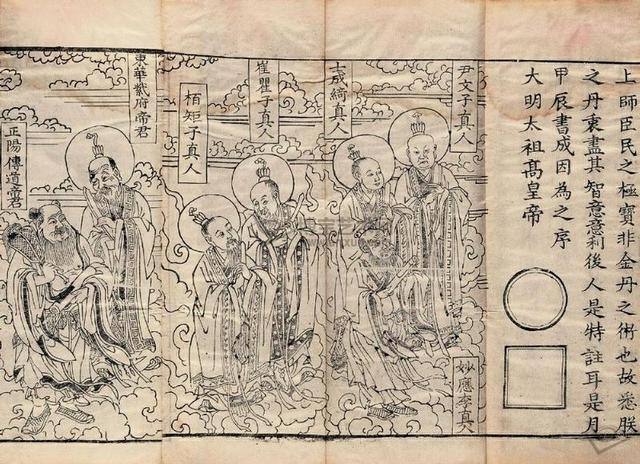 上師臣民之極寶非金丹之術也故悉朕
之丹衷盡其智意意利後人是特註耳是月
甲辰書成因為之序
大明太祖髙皇帝
尹文子真人
妙應李真
士成綺真人
崔瞿子真人
栢矩子真人
東華府帝君
正陽傳道帝君